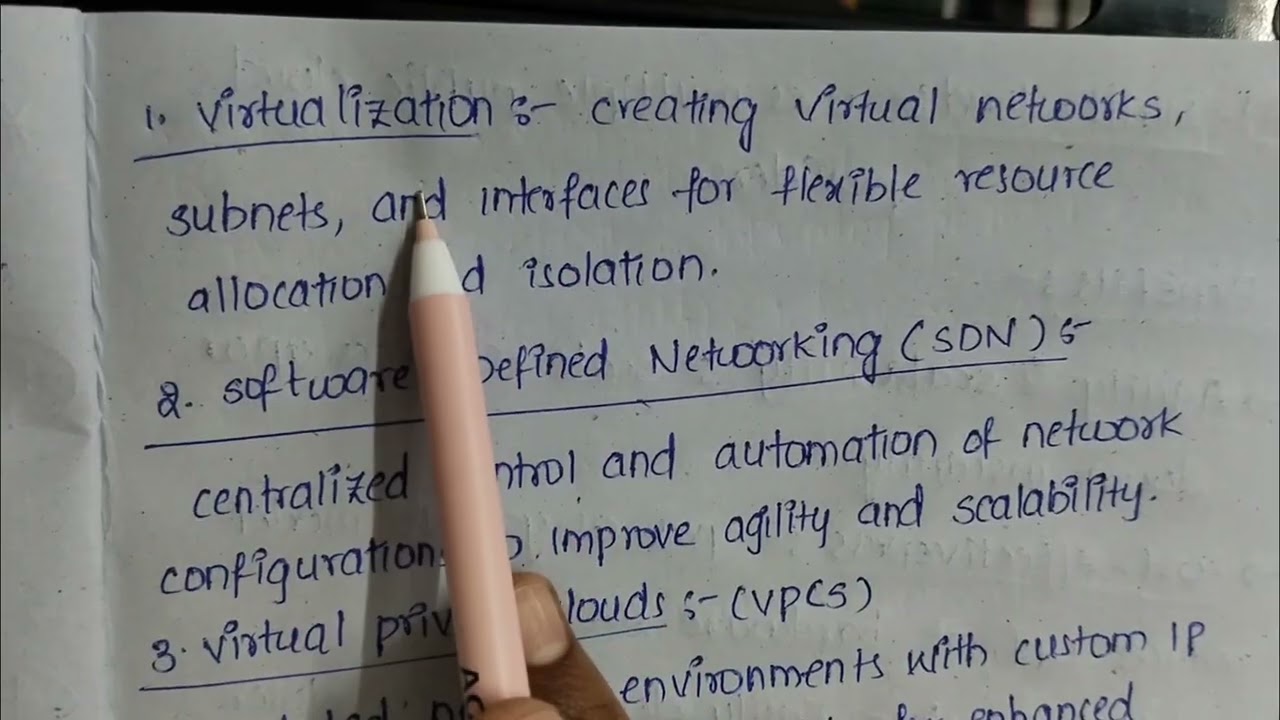 1. Virtualization :- creating virtual networks,
subnets, and interfaces for flexible resource
allocation isolation.
2. software Defined Networking (SDN) :-
centralized and automation of network
configuration improve agility and scalability.
3. virtual :- (VPCS)
environments with custom IP
enhanced